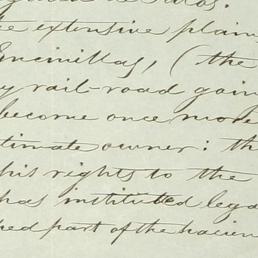 de Palos.
extensive plain
Encinillas, (the
rail-road goin
become once more
timate owner: th
his rights to the
has instituted lega
hed part of the hacien